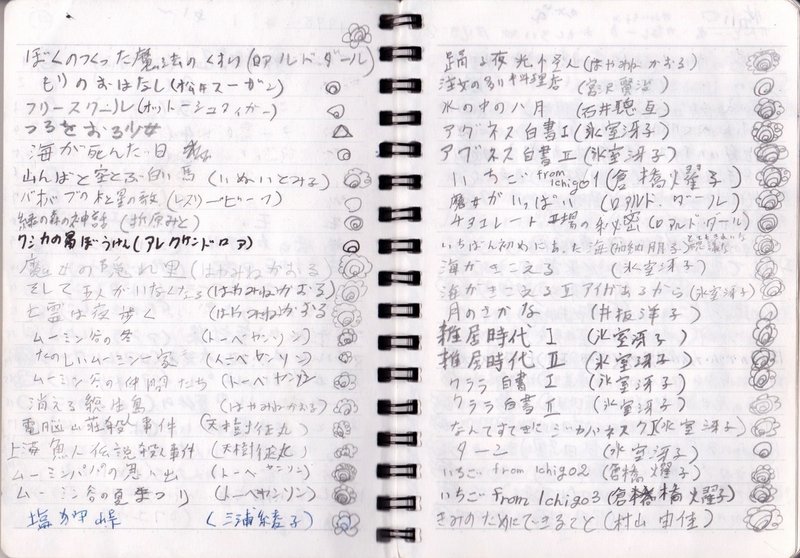 ぼくのつくった魔法のくすり(ロアルド・ダール)
もりのおはなし(松井スーザン)
フリースクール(ホットーシュフィガー)
つるをおる少女
海が死んだ日
山んばと空とぶ白い馬(いぬいとみ子)
バオバブの木と星の歌(レスリー・ビーク)
緑の森の神話(折原みと)
クシカの冒ぼうけん(アレクサンドロア)
魔女の隠れ里(はやみねかおる)
そして五人がいなくなる(はやみねかおる)
亡霊は夜歩く(はやみねかおる)
ムーミン谷の冬(トーベヤンソン)
たのしいムーミン一家(トーベヤンソン)
ムーミン谷の仲間たち(トーベヤンソン)
消える総生島(はやみねかおる)
電脳山荘殺人事件(天樹征丸)
上海魚人伝説殺人事件(天樹征丸)
ムーミンパパの思い出(トーベヤンソン)
ムーミン谷の夏まつり(トーベヤンソン)
塩狩峠(三浦綾子)
踊る夜光怪人(はやみねかおる)
注文の多い料理店(宮沢賢治)
水の中の八月(石井聰亙)
アグネス白書I(氷室冴子)
アグネス白書II(氷室冴子)
いちごfrom ichigo1(倉橋燿子)
魔女がいっぱい(ロアルド・ダール)
チョコレート工場の秘密(ロアルド・ダール)
いちばん初めにあった海(加納朋子)
海がきこえる(氷室冴子)
海がきこえるII アイがあるから(氷室冴子)
月のさかな(井坂洋子)
雑居時代I(氷室冴子)
雑居時代II(氷室冴子)
クララ白書I(氷室冴子)
クララ白書II(氷室冴子)
なんてすてきにジャパネスク(氷室冴子)
ターン(氷室冴子)
いちごfrom Ichigo2(倉橋燿子)
いちごfrom Ichigo3(倉橋燿子)
きみのためにできること(村山由佳)